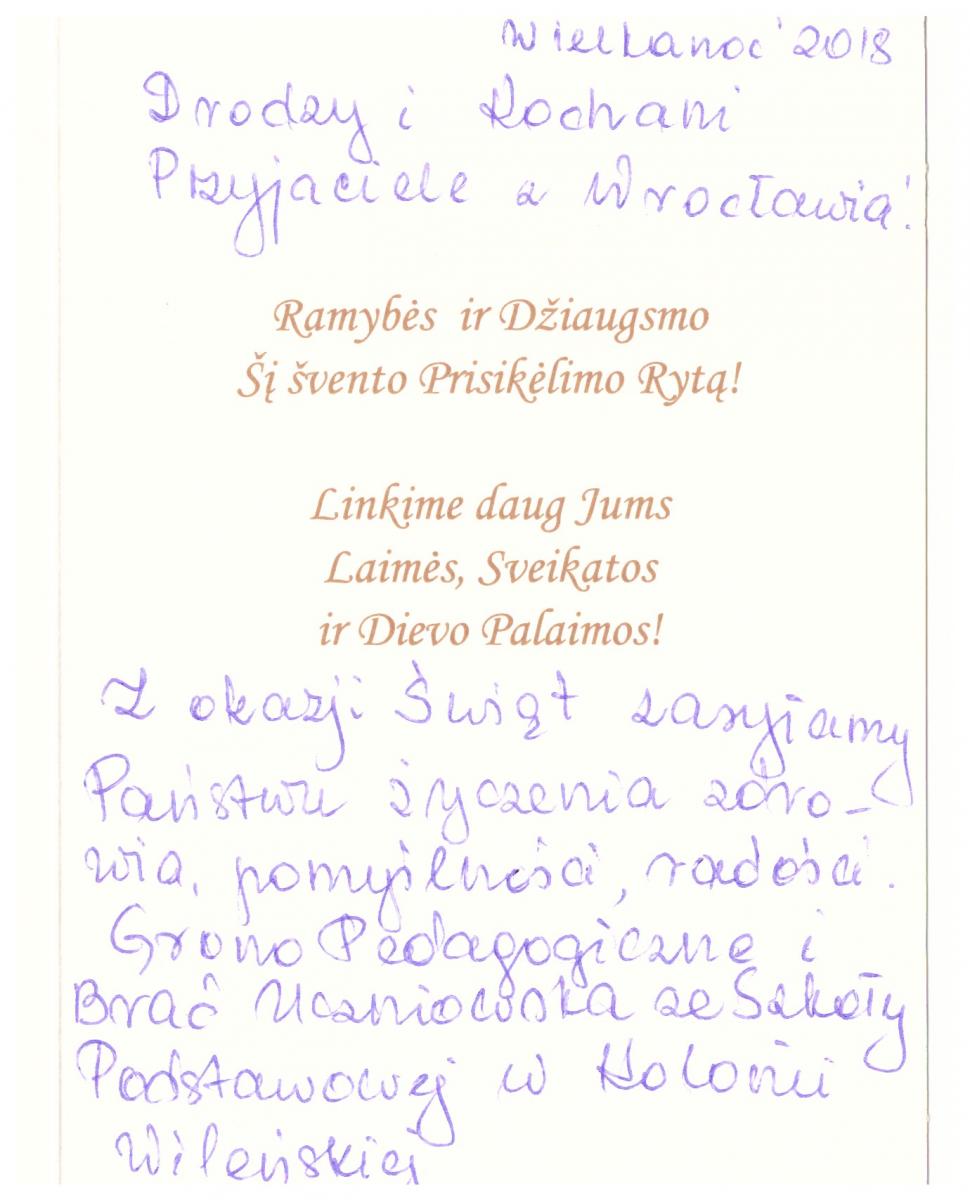 Wielkanoc' 2018
Drodzy i Kochani
Przyjaciele z Wrocławia!
Ramybės ir Džiaugsmo
Šį švento Prisikėlimo Rytą!
Linkime daug Jums
Laimės, Sveikatos
ir Dievo Palaimos!
Z okazji Świąt zasyłamy
Państwu życzenia zdro-
wia, pomyślności, radości.
Grono Pedagogiczne i
Brać Uczniowska ze Szkoły
Podstawowej w Kolonii
Wileńskiej